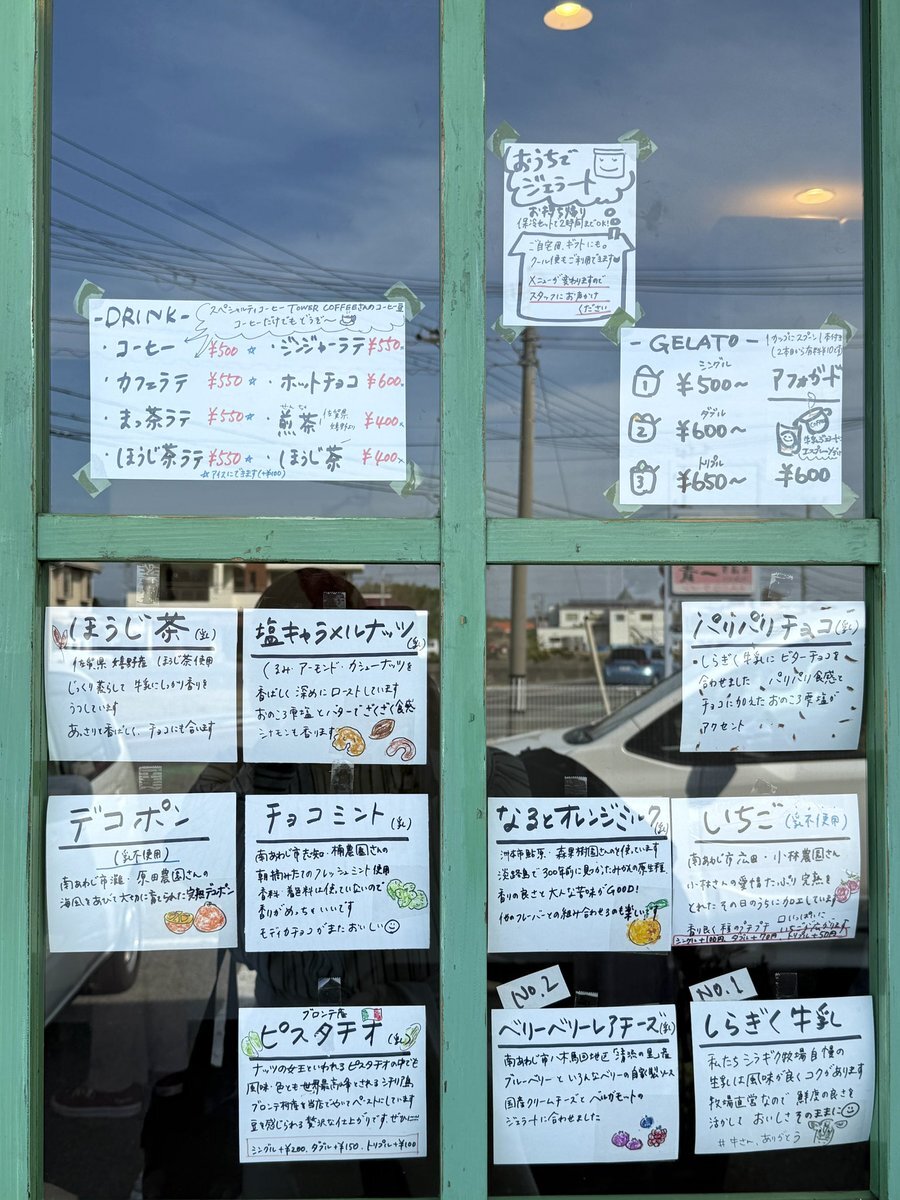 - DRINK -
スペシャルティコーヒー TOWER COFFEEさんのコーヒー豆
コーヒーだけでもどうぞ〜
・コーヒー ¥500 ☆
・カフェラテ ¥550 ☆
・まっ茶ラテ ¥550 ☆
・ほうじ茶ラテ ¥550 ☆
・ジンジャーラテ ¥550
・ホットチョコ ¥600
・煎茶 佐賀県 嬉野より ¥400
せんちゃ
・ほうじ茶 ¥400
☆アイスにできます(+¥100)
おうちで
ジェラート
お持ち帰り
保冷セットで2時間までOK!
ご自宅用、ギフトにも。
クール便もご利用できます
メニューが変わりますので
スタッフにお声かけ
ください
- GELATO -
1カップにスプーン1本付き
(2本目から有料¥10です)
1 シングル ¥500〜
2 ダブル ¥600〜
3 トリプル ¥650〜
アフォガード
牛乳ジェラートに
エスプレッソがけ
¥600
ほうじ茶(乳)
佐賀県 嬉野産 ほうじ茶使用
じっくり蒸らして 牛乳にしっかり香りを
うつしています
あっさりと香ばしく、チョコにも合います
塩キャラメルナッツ(乳)
くるみ・アーモンド・カシューナッツを
香ばしく 深めにローストしています
おのころ雫塩とバターでざくざく食感
シナモンも香ります
パリパリチョコ(乳)
・しらぎく牛乳に ビターチョコを
合わせました パリパリ食感と
チョコに加えた おのころ雫塩が
アクセント
デコポン
(乳不使用)
南あわじ市灘・原田農園さんの
海風をあびて大切に育てられた完熟デコポン
チョコミント(乳)
南あわじ市志知・楠農園さんの
朝摘みたてのフレッシュミント使用
香料・着色料は使っていないので
香りがめっちゃいいです
モディカチョコがまたおいしい
なるとオレンジミルク(乳)
洲本市鮎原・森果樹園さんのを使っています
淡路島で300年前に見つかったみかんの原生種
香りの良さと大人な苦味がGOOD!
他のフレーバーとの組み合わせるのも楽しいです
いちご(乳不使用)
南あわじ市広田・小林農園さん
小林さんの愛情たっぷり完熟を
とれたその日のうちに加工しています
香り良く種のプチプチ 口いっぱいに
いちごが広がります
シングル+100円、ダブル+70円、トリプル+50円
ブロンテ産
ピスタチオ(乳)
ナッツの女王といわれるピスタチオの中でも
風味・色とも世界最高峰とされるシチリア島
ブロンテ村産を当店でやいてペーストにしています
豆を感じられる贅沢な仕上がりです、ぜひに!!
シングル+¥200、ダブル+¥150、トリプル+¥100
No.2
ベリーベリーレアチーズ(乳)
南あわじ市八木馬回地区「清浜の里」産
ブルーベリーといろんなベリーの自家製ソース
国産クリームチーズとベルガモットの
ジェラートに合わせました
No.1
しらぎく牛乳
私たちシラギク牧場自慢の
生乳は風味が良くコクがあります
牧場直営なので 鮮度の良さを
活かして おいしさそのままに
#牛さん、ありがとう